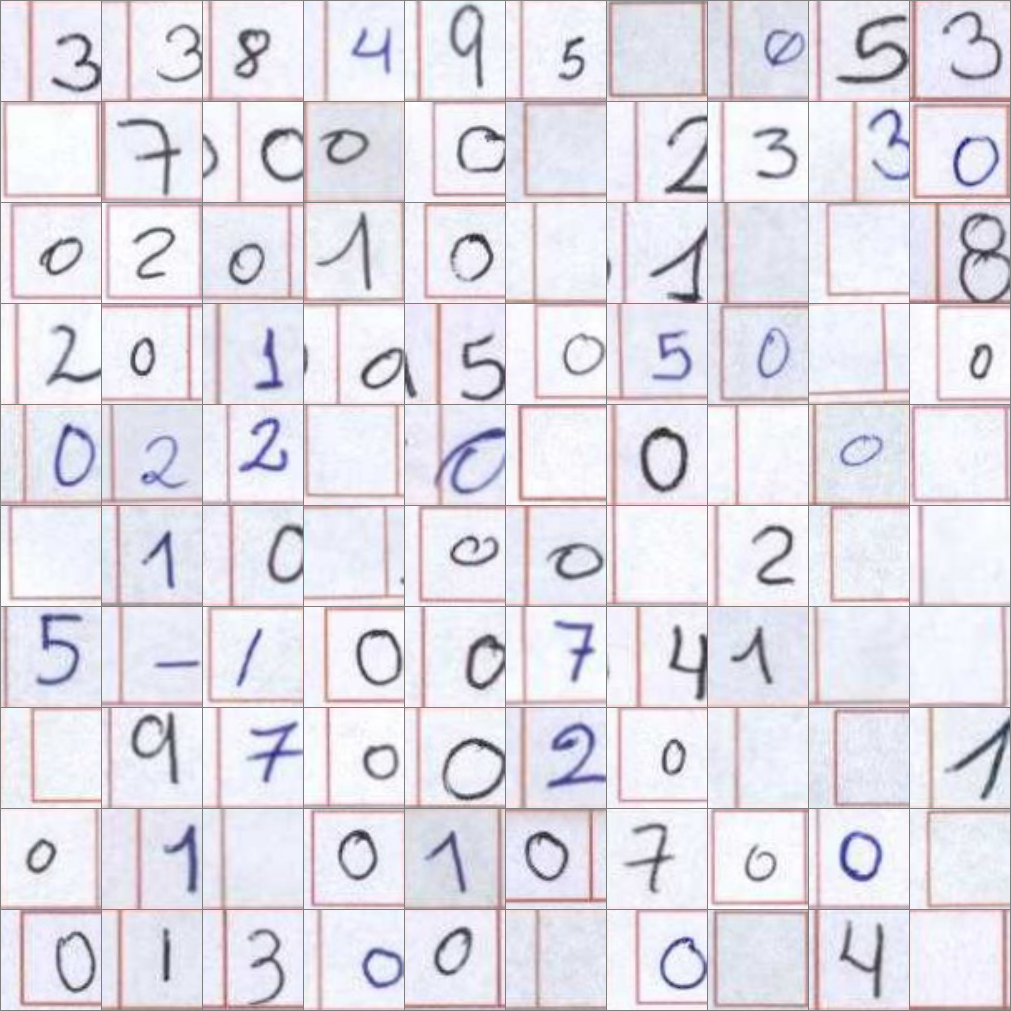 3 3 8 4 9 5 0 5 3
7 0 0 0 2 3 3 0
0 2 0 1 0 1 8
2 0 1 0 5 0 5 0 0
0 2 2 0 0 0
1 0 0 0 2
5 - 1 0 0 7 4 1
9 7 0 0 2 0 1
0 1 0 1 0 7 0 0
0 1 3 0 0 0 4